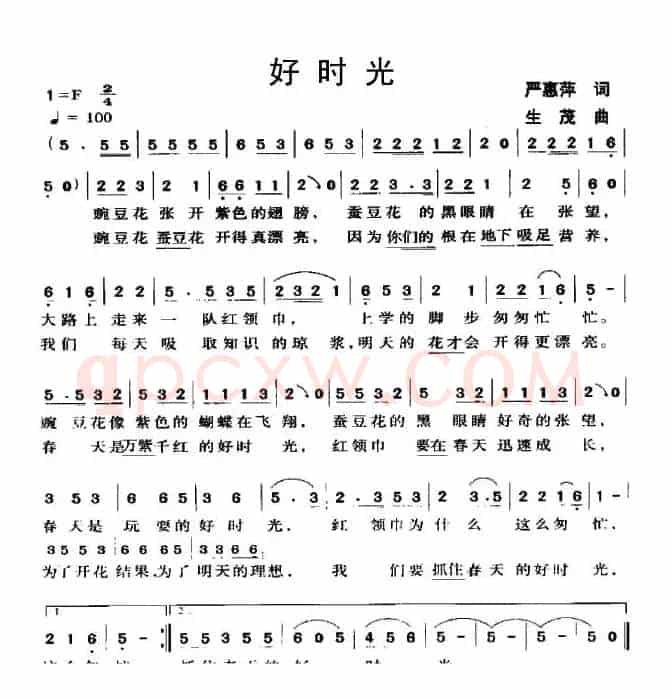 好时光
1=F 2/4
严惠萍 词
♩= 100
生 茂 曲
(5. 55 | 5555 | 653 | 653 | 22212 | 20 | 22216 |
50) | 223 | 2 1 | 6611 | 2↘0 | 223.3 | 2121 | 2 5 | 60 |
豌豆花 张 开 紫色的翅 膀， 蚕豆花 的 黑眼睛 在 张 望，
豌豆花 蚕豆花 开得真漂 亮， 因为 你们的 根在 地下 吸足 营 养，
616 | 22 | 5.535 | 2321 | 653 | 2 1 | 2216 | 5- |
大路上 走来 一 队红领 巾， 上学的 脚 步 匆匆忙 忙。
我们 每天 吸 取知识的 琼 浆，明天的 花才会 开得更漂 亮。
5.532 | 5532 | 1113 | 2↘0 | 5532 | 5 32 | 1113 | 2↘0 |
豌 豆花像 紫色的 蝴蝶在飞 翔， 蚕豆花的 黑 眼睛 好奇的张 望，
春 天是万紫千红 的好时 光， 红领巾 要在 春天 迅速成 长，
3 53 | 6 66 | 553 | 5.3 | 2.353 | 2 3.5 | 2216 | 1- |
春 天是 玩 耍的 好 时 光， 红 领巾为 什 么 这么匆 忙，
3553 | 6666 | 5535 | 3366
为了开花 结果，为了 明天的 理想， 我 们要 抓住 春天 的好时 光。
1. 2.
216 | 5- :| 5535 | 5535 | 605 | 456 | 5- | 5- ‖